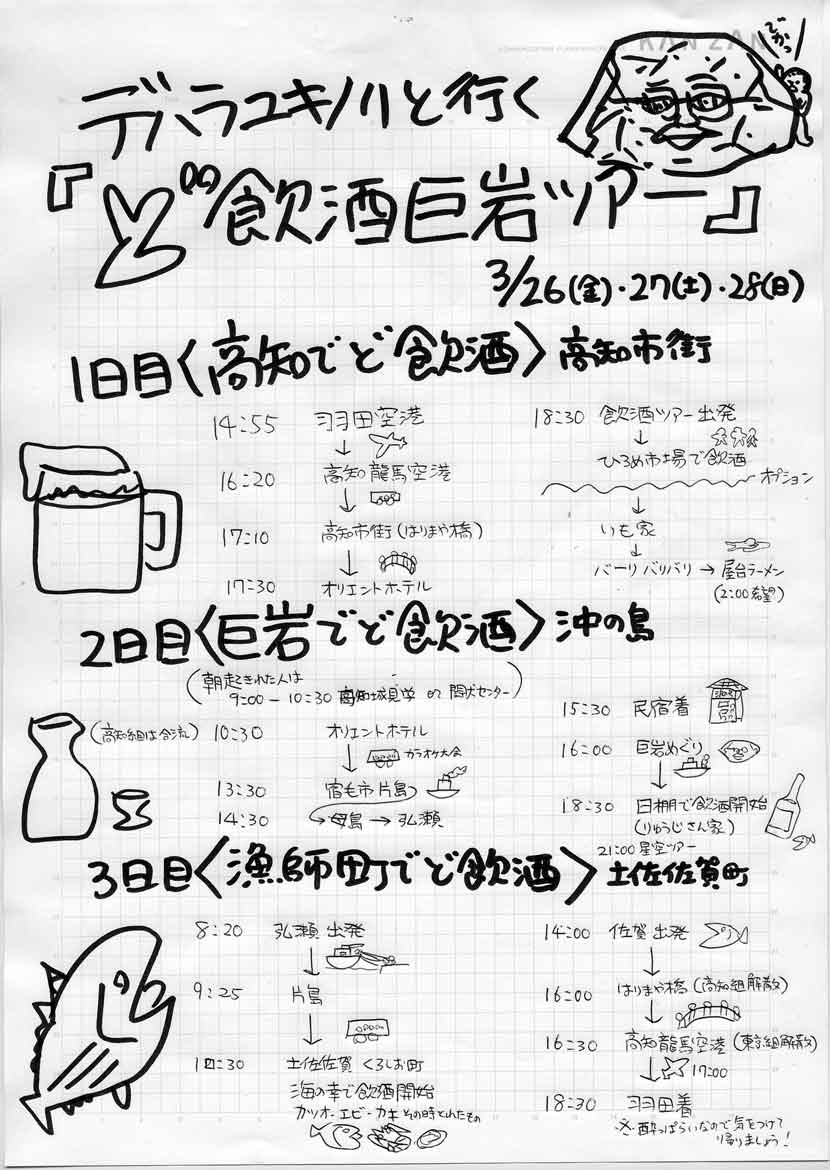 KANZAN
でかっ
デハラユキノリと行く
『ど飲酒巨岩ツアー』
3/26(金)・27(土)・28(日)
1日目〈高知でど飲酒〉高知市街
14:55 羽田空港
↓
16:20 高知龍馬空港
↓
17:10 高知市街(はりまや橋)
↓
17:30 オリエントホテル
18:30 飲酒ツアー出発
↓
ひろめ市場で飲酒
オプション
↓
いも家
↓
バーリバリバリ → 屋台ラーメン
(2:00希望)
2日目〈巨岩でど飲酒〉沖の島
(朝起きれた人は
9:00-10:30 高知城見学 or 闘犬センター)
(高知組は合流) 10:30 オリエントホテル
↓ カラオケ大会
13:30 宿毛市片島
14:30 → 母島 → 弘瀬
15:30 民宿着
16:00 巨岩めぐり
↓
18:30 臼棚で飲酒開始
(りゅうじさん家)
21:00 星空ツアー
3日目〈漁師町でど飲酒〉土佐佐賀町
8:20 弘瀬出発
↓
9:25 片島
↓
10:30 土佐佐賀 くろしお町
海の幸で飲酒開始
カツオ・エビ・カキ その時とれたもの
14:00 佐賀出発
↓
16:00 はりまや橋(高知組解散)
↓
16:30 高知龍馬空港(東京組解散)
↓ 17:00
18:30 羽田着
※酔っぱらいなので気をつけて
帰りましょう!